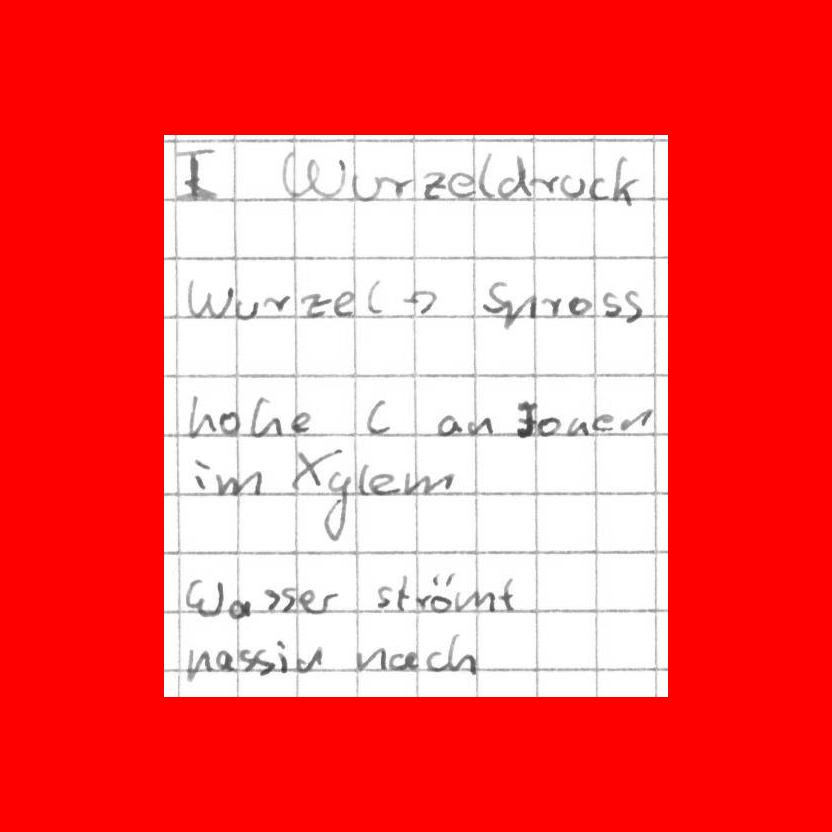 I Wurzeldruck
Wurzel → Spross
hohe C an Ionen
im Xylem
Wasser strömt
passiv nach